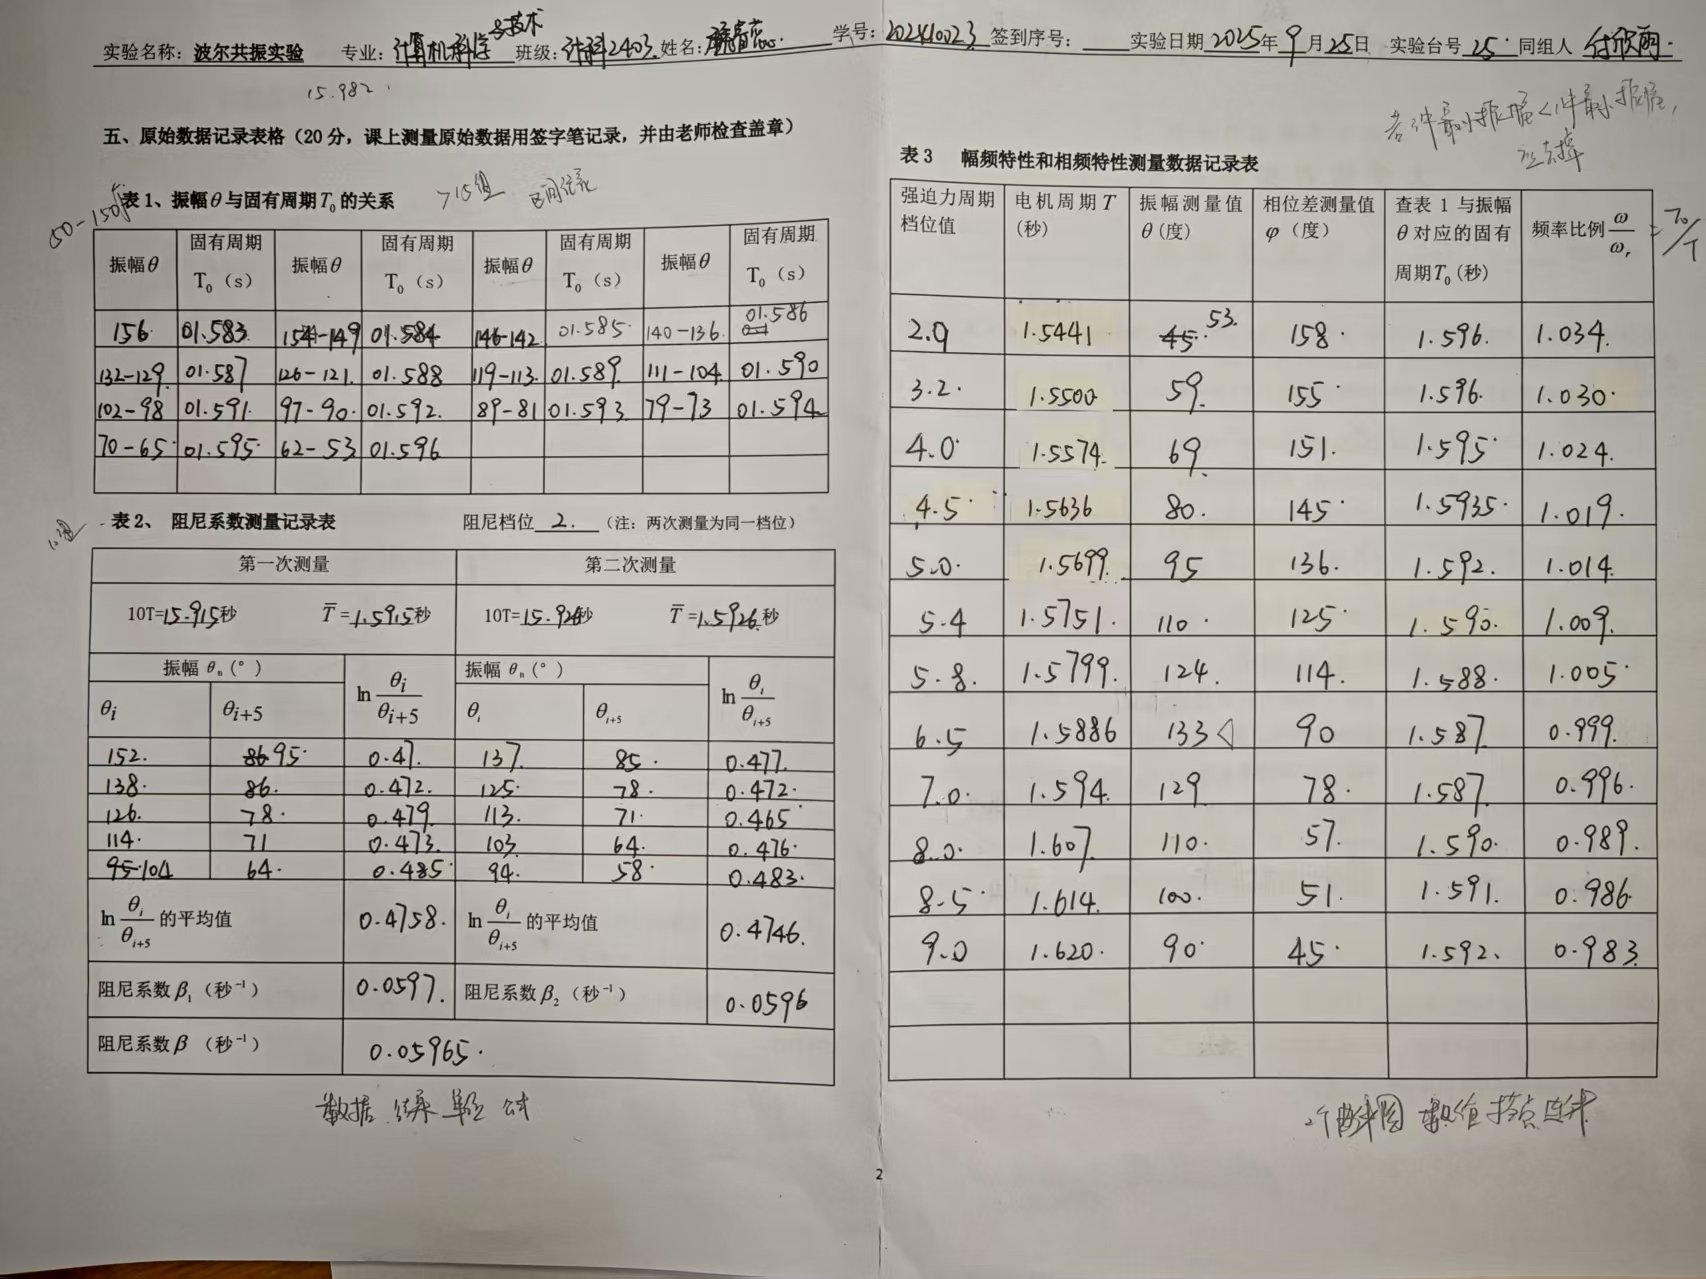 实验名称：波尔共振实验 专业：计算机科学与技术 班级：计科2403 姓名： 学号：202410023 签到序号： 实验日期2025年9月25日 实验台号25 同组人 付欣雨
15.982
五、原始数据记录表格（20分，课上测量原始数据用签字笔记录，并由老师检查盖章）
50-150
表1、振幅θ与固有周期T₀的关系 >15组
振幅θ 固有周期T₀（s） 振幅θ 固有周期T₀（s） 振幅θ 固有周期T₀（s） 振幅θ 固有周期T₀（s）
156 01.583 154-149 01.584 146-142 01.585 140-136 01.586
132-129 01.587 126-121 01.588 119-113 01.589 111-104 01.590
102-98 01.591 97-90 01.592 89-81 01.593 79-73 01.594
70-65 01.595 62-53 01.596
表2、 阻尼系数测量记录表 阻尼档位 2. （注：两次测量为同一档位）
第一次测量 第二次测量
10T=15.915秒 T̅=1.5915秒 10T=15.926秒 T̅=1.5926秒
振幅 θₙ(°) ln θi/θi+5 振幅 θₙ(°) ln θi/θi+5
θi θi+5 θi θi+5
152. 86 95 0.47. 137. 85. 0.477.
138. 86. 0.472. 125. 78. 0.472.
126. 78. 0.479. 113. 71. 0.465
114. 71 0.473. 103 64. 0.476.
95 104 64. 0.485. 94. 58. 0.483.
ln θi/θi+5 的平均值 0.4758. ln θi/θi+5 的平均值 0.4746.
阻尼系数β₁（秒⁻¹） 0.0597. 阻尼系数β₂（秒⁻¹） 0.0596
阻尼系数β （秒⁻¹） 0.05965.
数据 结果 单位 公式
若2件最小振幅<1件最小振幅，
应去掉
表3 幅频特性和相频特性测量数据记录表
强迫力周期档位值 电机周期T（秒） 振幅测量值θ（度） 相位差测量值φ（度） 查表1与振幅θ对应的固有周期T₀（秒） 频率比例ω/ωr =T₀/T
2.0 1.5441 45 53. 158. 1.596. 1.034.
3.2. 1.5500 59. 155. 1.596. 1.030.
4.0 1.5574. 69. 151. 1.595. 1.024.
4.5 1.5636 80. 145. 1.5935. 1.019.
5.0. 1.5699. 95 136. 1.592. 1.014.
5.4 1.5751. 110. 125. 1.590. 1.009.
5.8. 1.5799. 124. 114. 1.588. 1.005.
6.5 1.5886 133 90 1.587. 0.999.
7.0. 1.594. 129. 78. 1.587. 0.996.
8.0. 1.607. 110. 57. 1.590. 0.989.
8.5 1.614. 100. 51. 1.591. 0.986.
9.0 1.620. 90. 45. 1.592. 0.983.
2个曲线图 数值 描点 连线
2